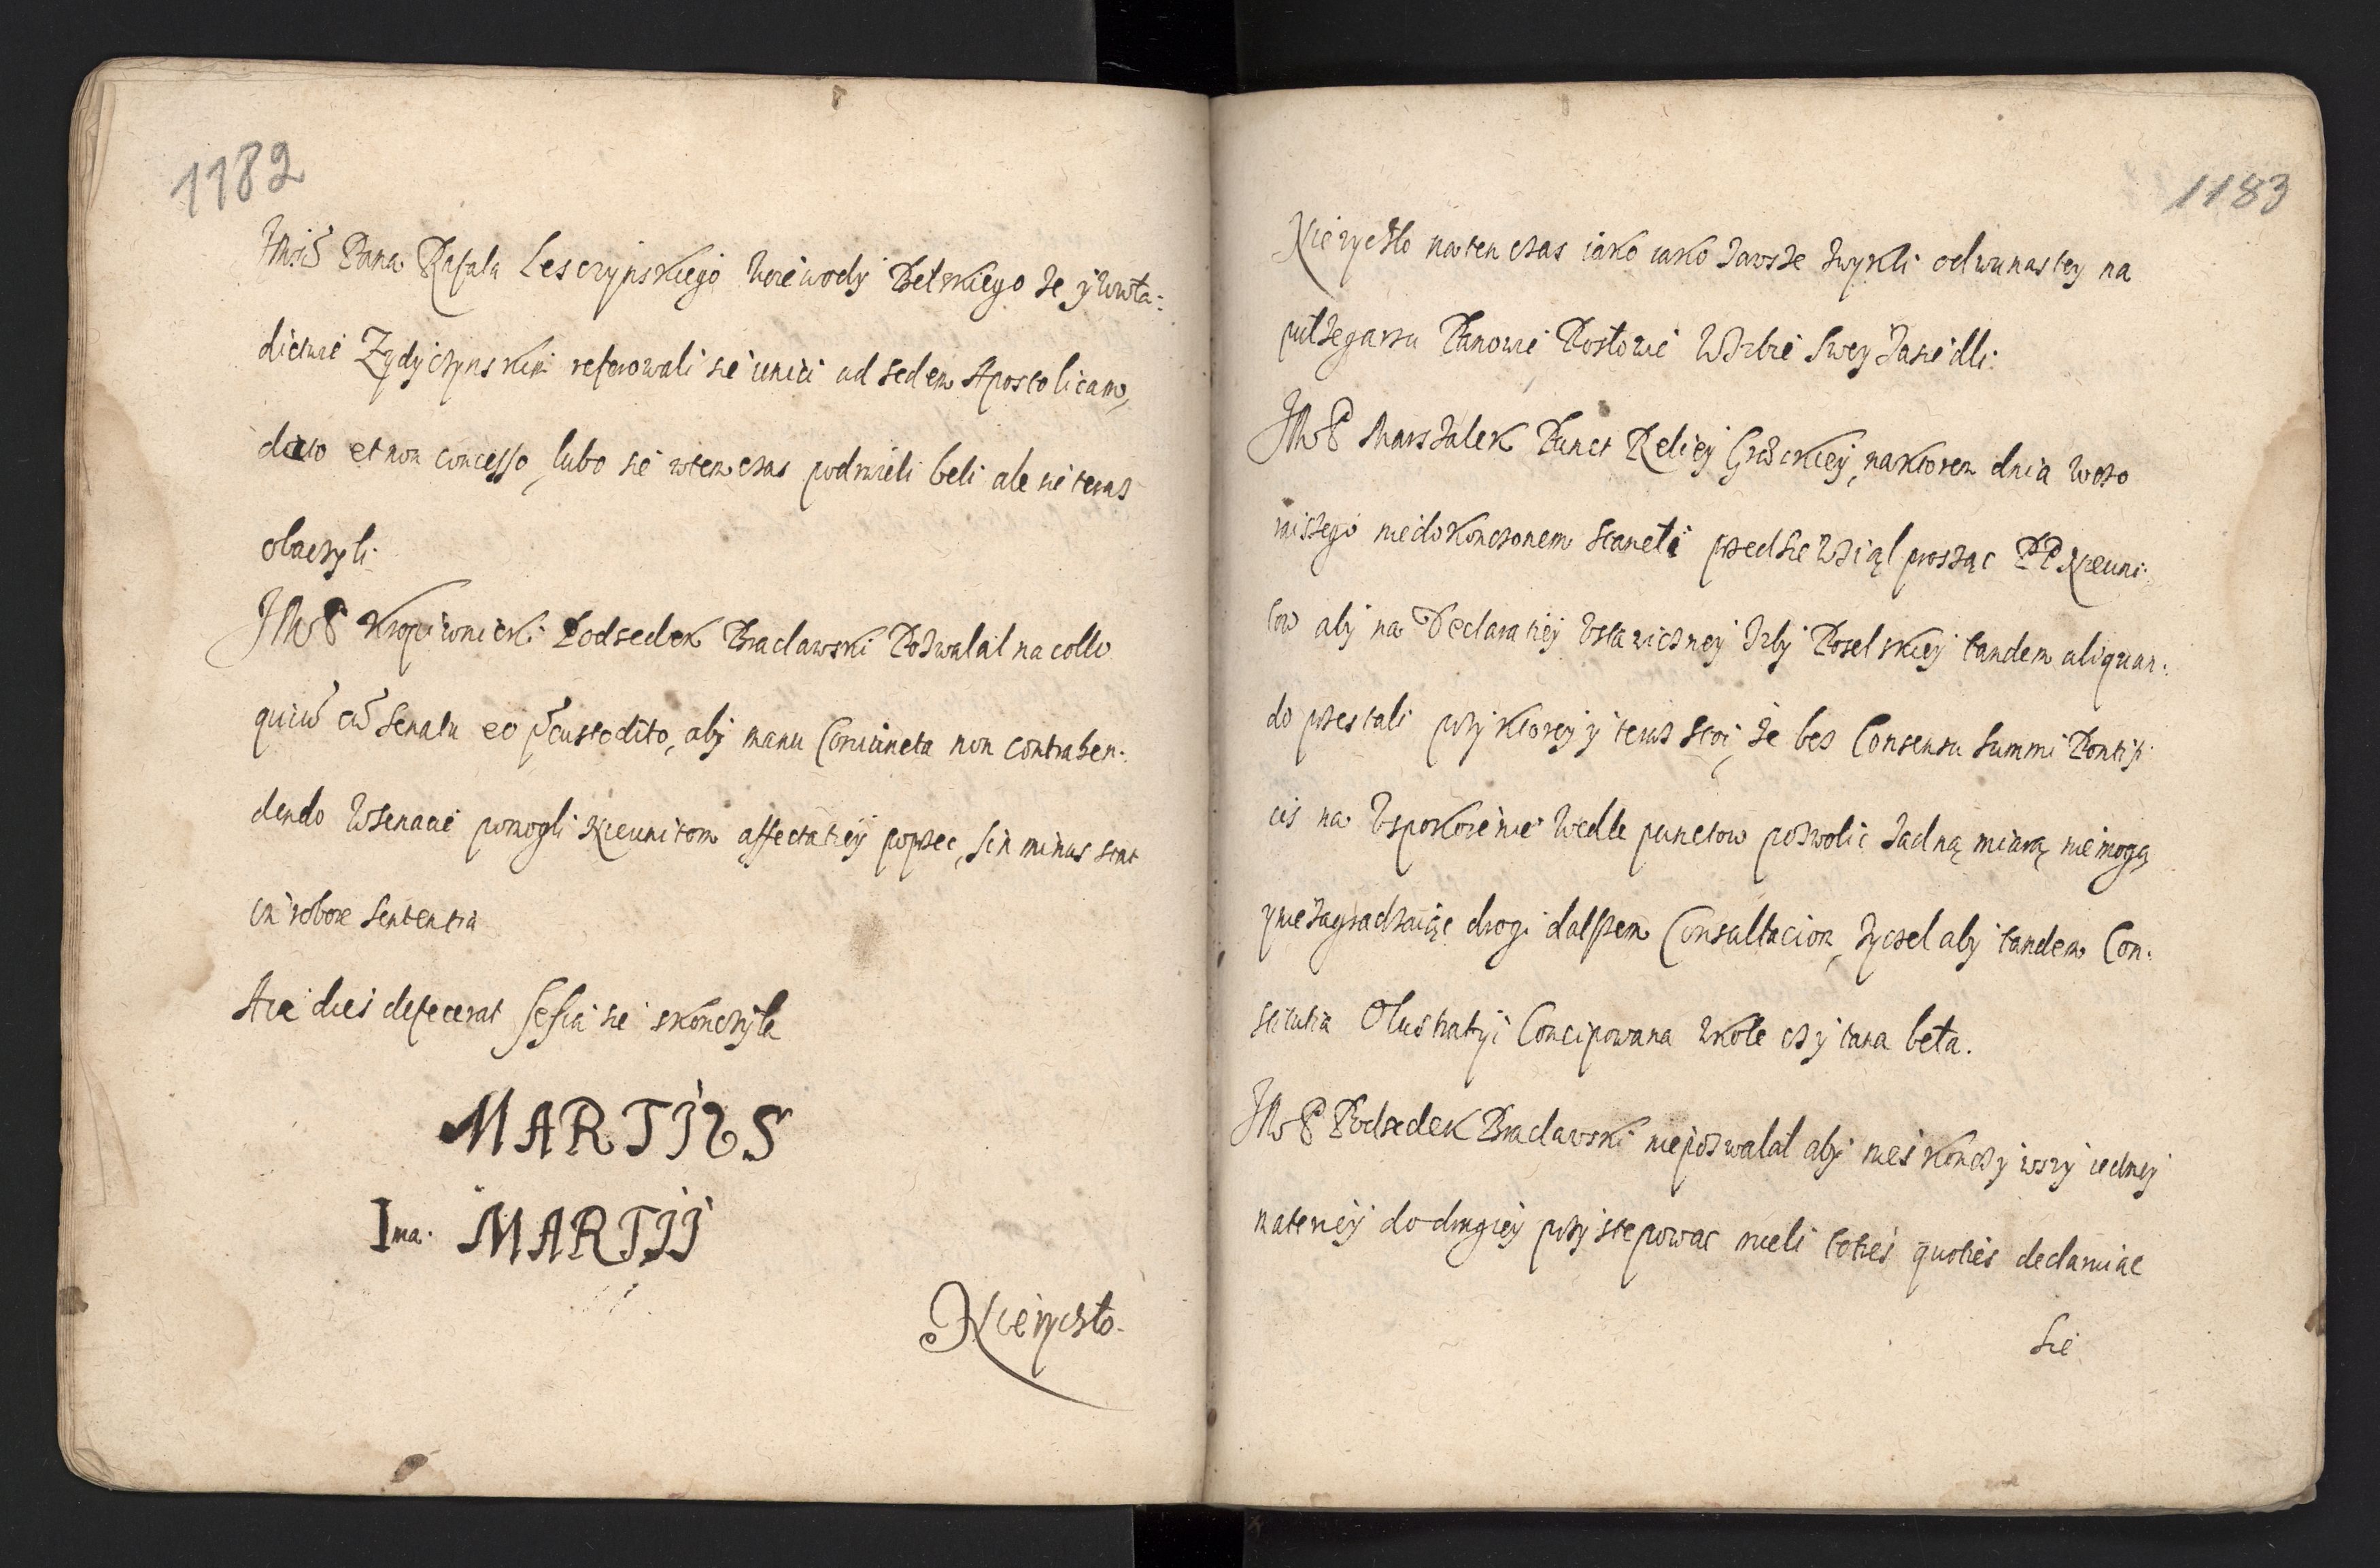 1182
JMści Pana Rafała Lesczynskiego Woiewody Belskiego że y Uwła:
dictwie Zydyczynskiem referowali sie unici ad sedem Apostolicam,
dato et non concesso, lubo sie wtem czas podmieli beli ale sie teraz
obaczyli.
JMP Kropiwnicki Podsedek Braclawski Pozwalal na collo
quiu͠ cu͠ Senatu eo p͠custodito, aby manu Coniuncta non contraben:
dendo Wsenacie pomogli Nieunitom affectatiey poprzec, sin minus stat
in robore Sententia
Atq dies defecerat Sessia sie skonczyla
MARTIUS
Ima. MARTII
Nierychło.
1183
Nierychło naten czas iako iako Zawsze Zwykli odwunastey na
pułzegarzu Panowie Posłowie WIzbie swey Zasiedli.
JMP Marszalek Punct Reliey Greckiey, naktorem dnia Wczo
raiszego niedokonczonem staneli przedsie Wziąl prosząc PP Nieuni:
tow aby na Declaratiey Ustawiczney Izby Poselskiey tandem aliquan:
do przestali przy ktorey y teraz stoi, że bez Consensu Summi Pontifi
cis na Uspokoienie Wedle punctow pozwolic Żadną miarą niemogą
y nie Zagradzaiąc drogi dalszem Consultaciom, życzel aby tandem Con:
stitutia Olustratyi Concipowana Wkole czytana beła.
JMP Podsedek Braclawski niepozwalal aby nieskonczywszy iedney
materiey do drugiey przystepowac mieli toties quoties declaruiac
Sie